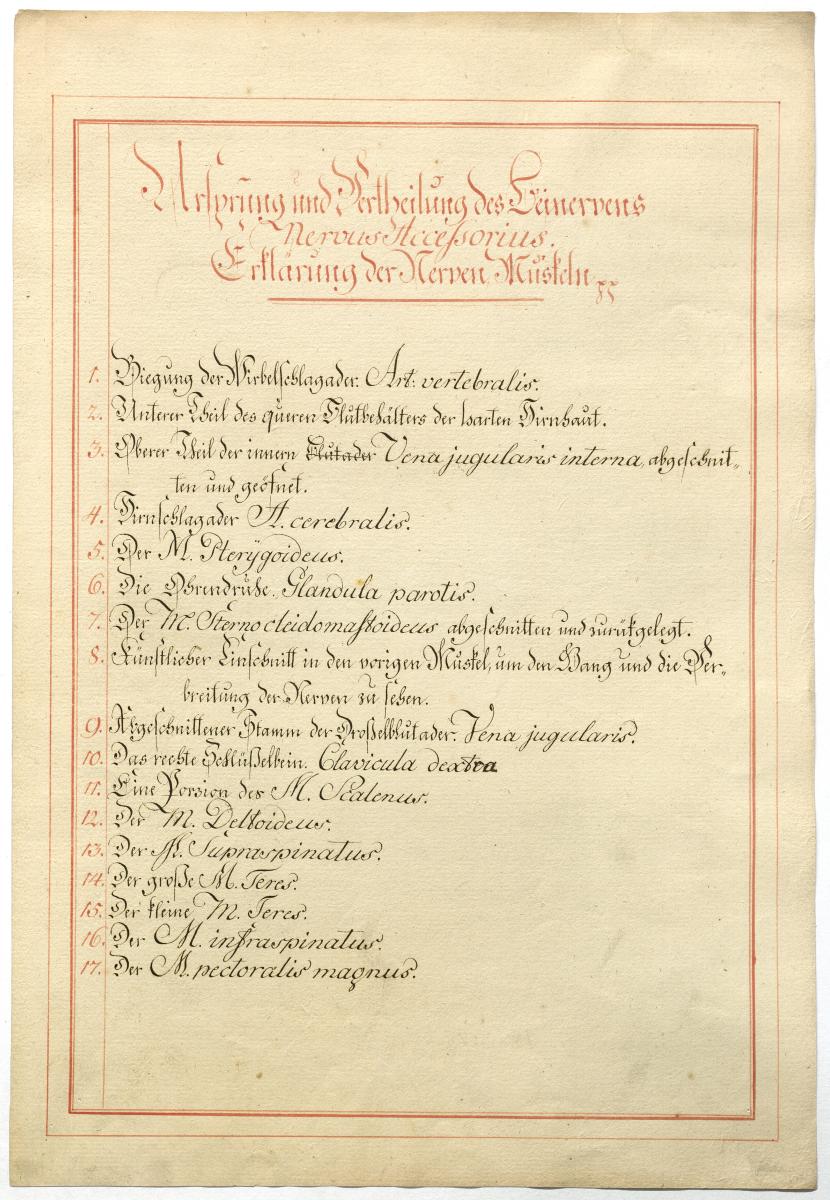 Ursprung und Vertheilung des Beinervens
Nervus Accessorius.
Erklärung der Nerven, Muskeln pp
1. Biegung der Wirbelschlagader. Art: vertebralis.
2. Unterer Theil des queren Blutbehälters der harten Hirnhaut.
3. Oberer Theil der innern Blutader Vena jugularis interna, abgeschnit-
ten und geöfnet.
4. Hirnschlagader A. cerebralis.
5. Der M. Pterÿgoideus.
6. Die Ohrendrüße. Glandula parotis.
7. Der M. Sternocleidomastoideus abgeschnitten und zurükgelegt.
8. Künstlicher Einschnitt in den vorigen Muskel, um den Gang und die Ver-
breitung der Nerven zu sehen.
9. Abgeschnittener Stamm der Droßelblutader. Vena jugularis.
10. Das rechte Schlüßelbein. Clavicula dextra
11. Eine Porzion des M. Scalenus.
12. Der M. Deltoideus.
13. Der M. Supraspinatus.
14. Der große M. Teres.
15. Der kleine M. Teres.
16. Der M. infraspinatus.
17. Der M. pectoralis magnus.